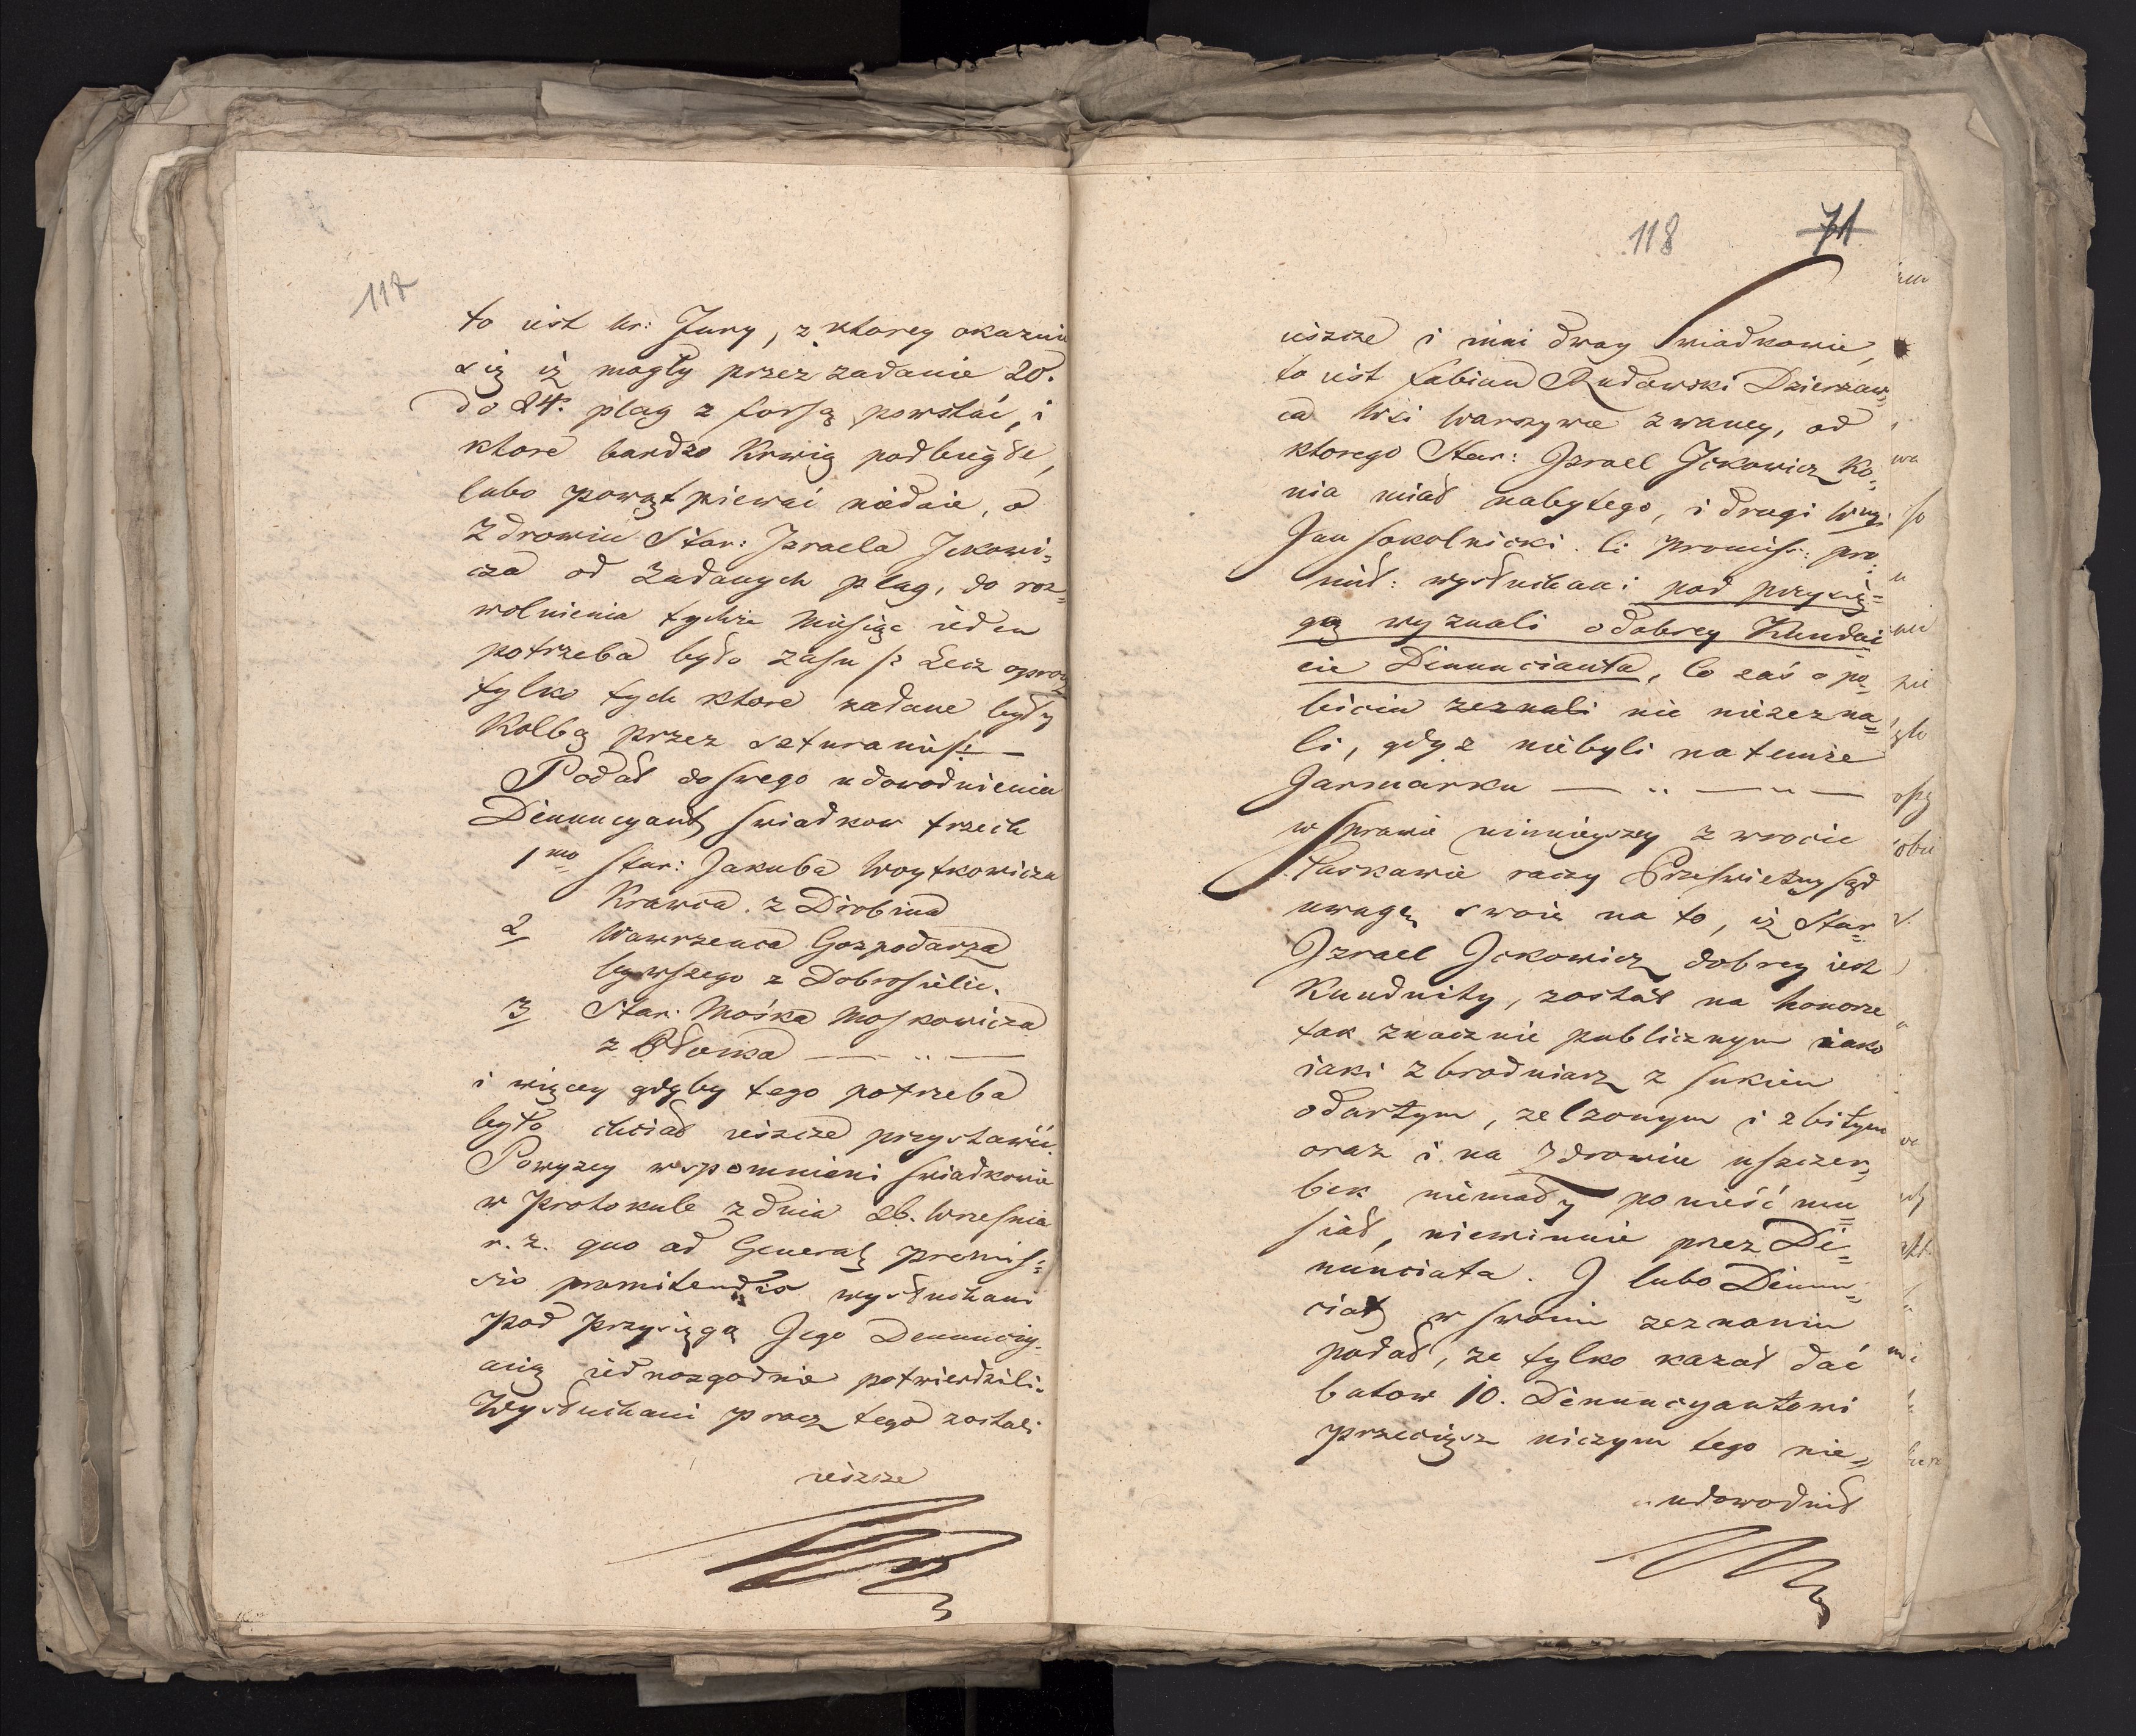 117
to iest kr: Jury, z ktorey okazuie
się iż mogły przez zadanie 20.
do 24. plag z forsą powstać, i
ktore bardzo Krwią podbiegłe,
lubo powątpiewać niedaie, o
Zdrowiu Star: Izraela Jckowi=
cza od Zadanych plag, do roz=
wolnienia tychże Miesiąc ieden
potrzeba było Lecz oprocz
tylko tych ktore zadane były
Kolbą przez
Podał do swego udowodnienia
Denuncyant swiadkow trzech
1mo Star: Jakuba Woytkowicza
Krawca z Drobina
2 Wawrzenca Gospodarza
bywszego z Dobrosielic.
3 Star: Mośka Moskowicza
z Płonka — .. —
i więcey gdyby tego potrzeba
było chciał ieszcze przystawić.
Powyzey wspomnieni swiadkowie
w Protokule z dnia 26. Wrzesnia
r. z. quo ad General promis=
sio promitendis wysłuchani
pod Przysięgą Jego Denuncy=
acią iednozgodnie potwierdzili.
Wysłuchani procz tego zostali
ieszcze
118 71
ieszcze i inni dway Swiadkowie,
to iest Fabian Rudowski Dzierzaw=
ca Wsi Warszywa zwaney, od
ktorego Star: Jzrael Jckowicz Ko=
nia miał nabytego, i drugi
Jan Sokolnicki. Ci promiss: pro=
mit: wysłuchani pod przysię=
gą wyznali o dobrey Kundui
cie Denuncianta, Co zaś o po=
biciu zeznali nic niezezna=
li, gdyz niebyli na temże
Jarmarku — .. — .. —
w Sprawie ninnieyszey zwrocic
Łaskawie raczy Prześwietny sąd
uwagę swoie na to, iż Star=
Jzrael Jckowicz dobrey iest
Kunduity, został na honorze
tak znacznie publicznym iako
iaki zbrodniarz z sukien
odartym, zelzonym i zbitym
oraz i na Zdrowiu uszczer=
bek niemały ponieść mu=
siał, niewinnie przez De=
nunciata. J lubo Denun=
ciat w swoim zeznaniu
podał, ze tylko kazał dać
batow 10. Denuncyantowi
przeciąsz niczym tego nie=
udowodnił